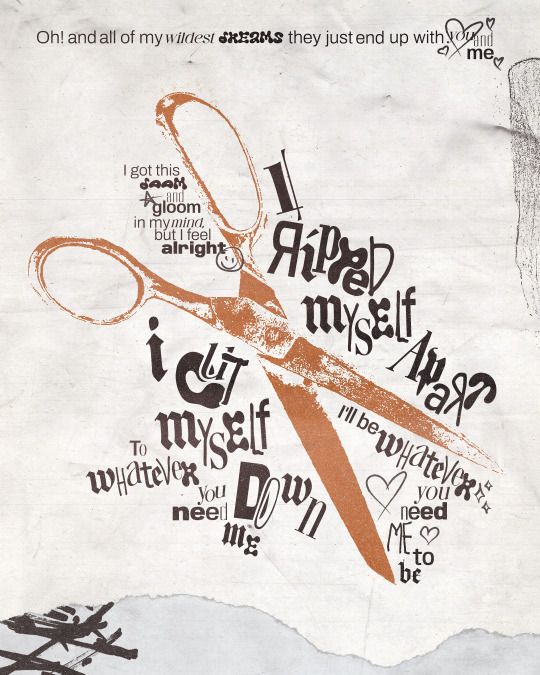 Oh! and all of my wildest dREAMS they just end up with you and me
I got this
dOOM
and
gloom
in my mind,
but I feel
alright
I
RippeD
mySElf
ApaRt
I'll be whatever
you
need
ME to
be
i CUT
mySElf
To
whatever
you
need
DOwn
me